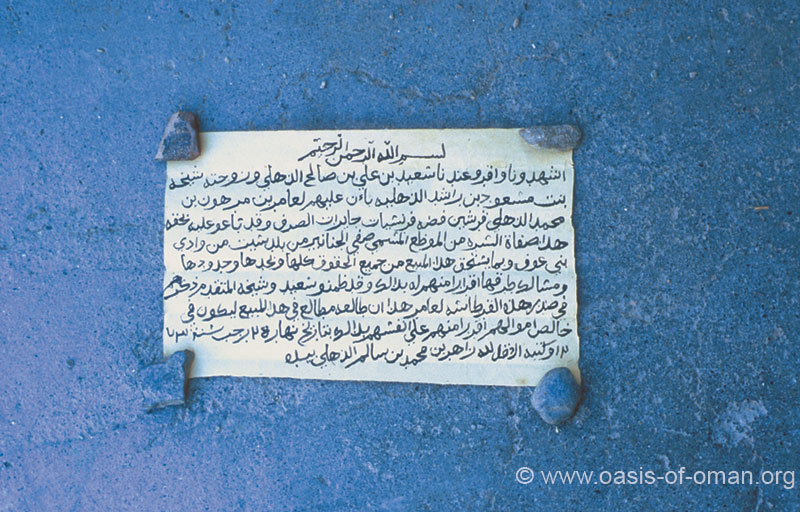 بسم الله الرحمن الرحيم
اشهدونا واقرو عندنا سعيد بن علي بن صالح الذهلي وزوجته شيخه
بنت مسعود بن راشد الذهليه بأن عليهم لعامر بن مرهون بن
محمد الذهلي قرشين فضه فرنسيات جايزات الصرف وقد باعو عليه بحقه
هذا صفاة السده من الموضع المسمى صفي الخنانير من بلد شين من وادي
بني عوف وبما يستحق هذا المبيع من جميع الحقوق كلها ونجدها وحدودها
ومسالك طرقها اقرارا منهم له بذلك وقد ضمنو سعيد وشيخه المتقدم ذكرهم
في صدر هذه القرطاسه لعامر هذا ان طالعه مطالع في هذا المبيع ليكون في
خالص اموالهم اقرارا منهم على انفسهم بذلك بتاريخ نهار رجب سنة
وكتبه الاقل لله زاهد بن محمد بن سالم الذهلي بيده
© www.oasis-of-oman.org